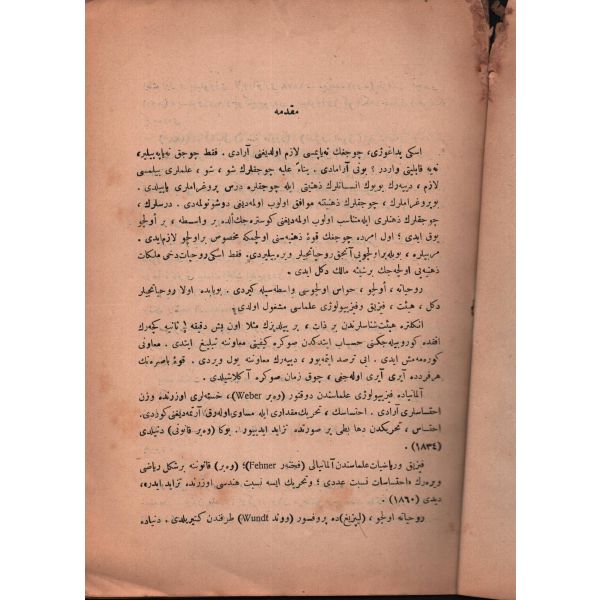 مقدمه
اسكى پداغوژى، چوجغك نه‌ياپمسى لازم اولديغنى آرادى . فقط چوجق نه‌ياپه‌بيلير،
نه‌يه قابليتى واردر ؟ بونى آرامادى . بناءً عليه چوجقلرك شو ، شو ، علملرى بيلمسى
لازم ، ديه‌رك بويوك انسانلرك ذهنيتى ايله چوجقلره درس پروغراملرى ياپيلدى .
بوپروغراملرك ، چوجقلرك ذهنيتنه موافق اولوب اولمديغنى دوشونولمه‌دى . درسلرك ،
چوجقلرك ذهنلرى ايله متناسب اولوب اولمه‌ديغنى كوستره‌جك ألده بر واسطه ، بر أولچو
يوق ايدى ؛ اول امرده چوجغك قوهٔ ذهنيه‌سنى اولچمكه مخصوص براولچو لازم ايدى .
مربيلره ، بويله براولچويى آنجق روحياتجيلر ويره‌بيليردى. فقط اسكى روحيات دخى ملكات
ذهنيه‌يى اولچه‌جك برشيئه مالك دكل ايدى .
روحياته ، أولچو ، حواس اولچوسى واسطه‌سيله كيردى . بوبابده اولا روحياتجيلر
دكل ، هيئت ، فيزيق وفيزيولوژى علماسى مشغول اولدى.
انكلتره هيئت‌شناسلرندن بر ذات ، بر ييلديزك مثلا اون بش دقيقه ثانيه كچه‌رك
افقده كوروبيله‌جكنى حساب ايتدكدن صوكره كيفيتى معاوننه تبليغ ايتدى . معاونى
كوره‌مه‌مش ايدى . ايى ترصد ايتمه‌يور ، ديه‌رك معاوننه يول ويردى . قوهٔ باصره‌نك
هرفردده آيرى آيرى اوله‌جغى ، چوق زمان صوكره آكلاشيلدى .
آلمانياده فيزيولوژى علماسندن دوقتور (وه‌بر Weber)، خسته‌لرى اوزرنده وزن
احتساسلرى آرادى . احتساسك ، تحريك مقدارى ايله مساوى اوله‌رق آرتمه‌ديغنى كوردى.
احتساس ، تحريكدن دها بطى بر صورتده تزايد ايدييور . بوكا (وه‌بر قانونى) دنيلدى
(١٨٣٤) .
فيزيق ورياضيات علماسندن آلمانيالى (فيخنه‌ر Fehner)؛ (وه‌بر) قانوننه برشكل رياضى
ويره‌رك «احتساسات نسبت عددى ؛ وتحريك ايسه نسبت هندسى اوزرنده تزايد ايدر»،
ديدى (١٨٦٠) .
روحياته اولچو ، (ليپزيغ)ده پروفسور (ووند Wundt) طرفندن كتيريلدى . دنياده